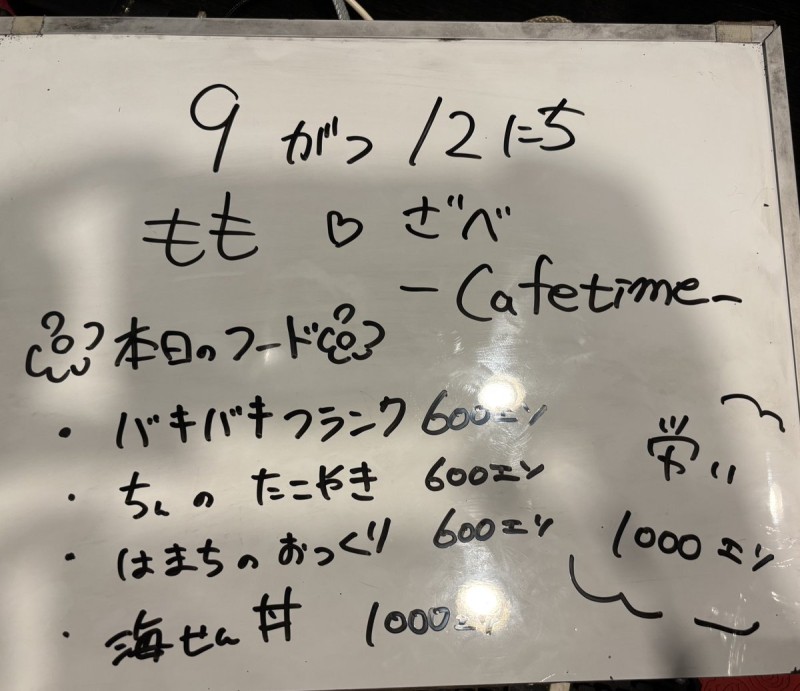 9がつ12にち
もも♡ざべ
-Cafetime-
本日のフード
・バキバキフランク 600エン
・ちんのたこやき 600エン
・はまちのおっくり 600エン
・海せん丼 1000エン
1000エン